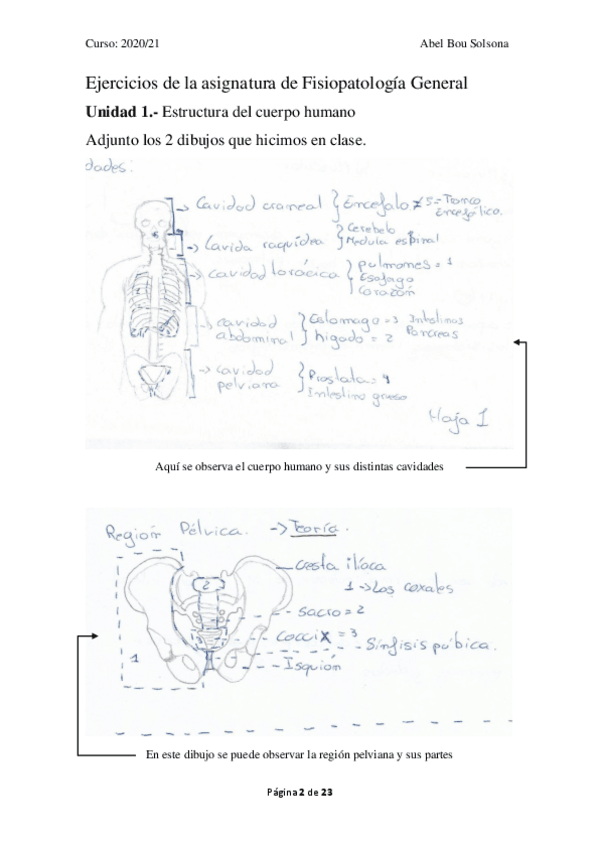 Curso: 2020/21 Abel Bou Solsona
Ejercicios de la asignatura de Fisiopatología General
Unidad 1.- Estructura del cuerpo humano
Adjunto los 2 dibujos que hicimos en clase.
dades:
→ Cavidad craneal } Encéfalo 5 = Tronco
Encefálico.
→ Cavida raquídea } Cerebelo
Medula espinal
→ cavidad torácica } pulmones = 1
Esofago
Corazón
→ cavidad abdominal } Estomago = 3 Intestinos
hígado = 2 Pancreas
→ cavidad pelviana } Prostata = 4
Intestino grueso
Hoja 1
Aquí se observa el cuerpo humano y sus distintas cavidades
Región Pélvica. → Teoría.
cresta ilíaca
1 → Los coxales
2
sacro = 2
coccix = 3
Sínfisis púbica.
1
Isquión
En este dibujo se puede observar la región pelviana y sus partes
Página 2 de 23